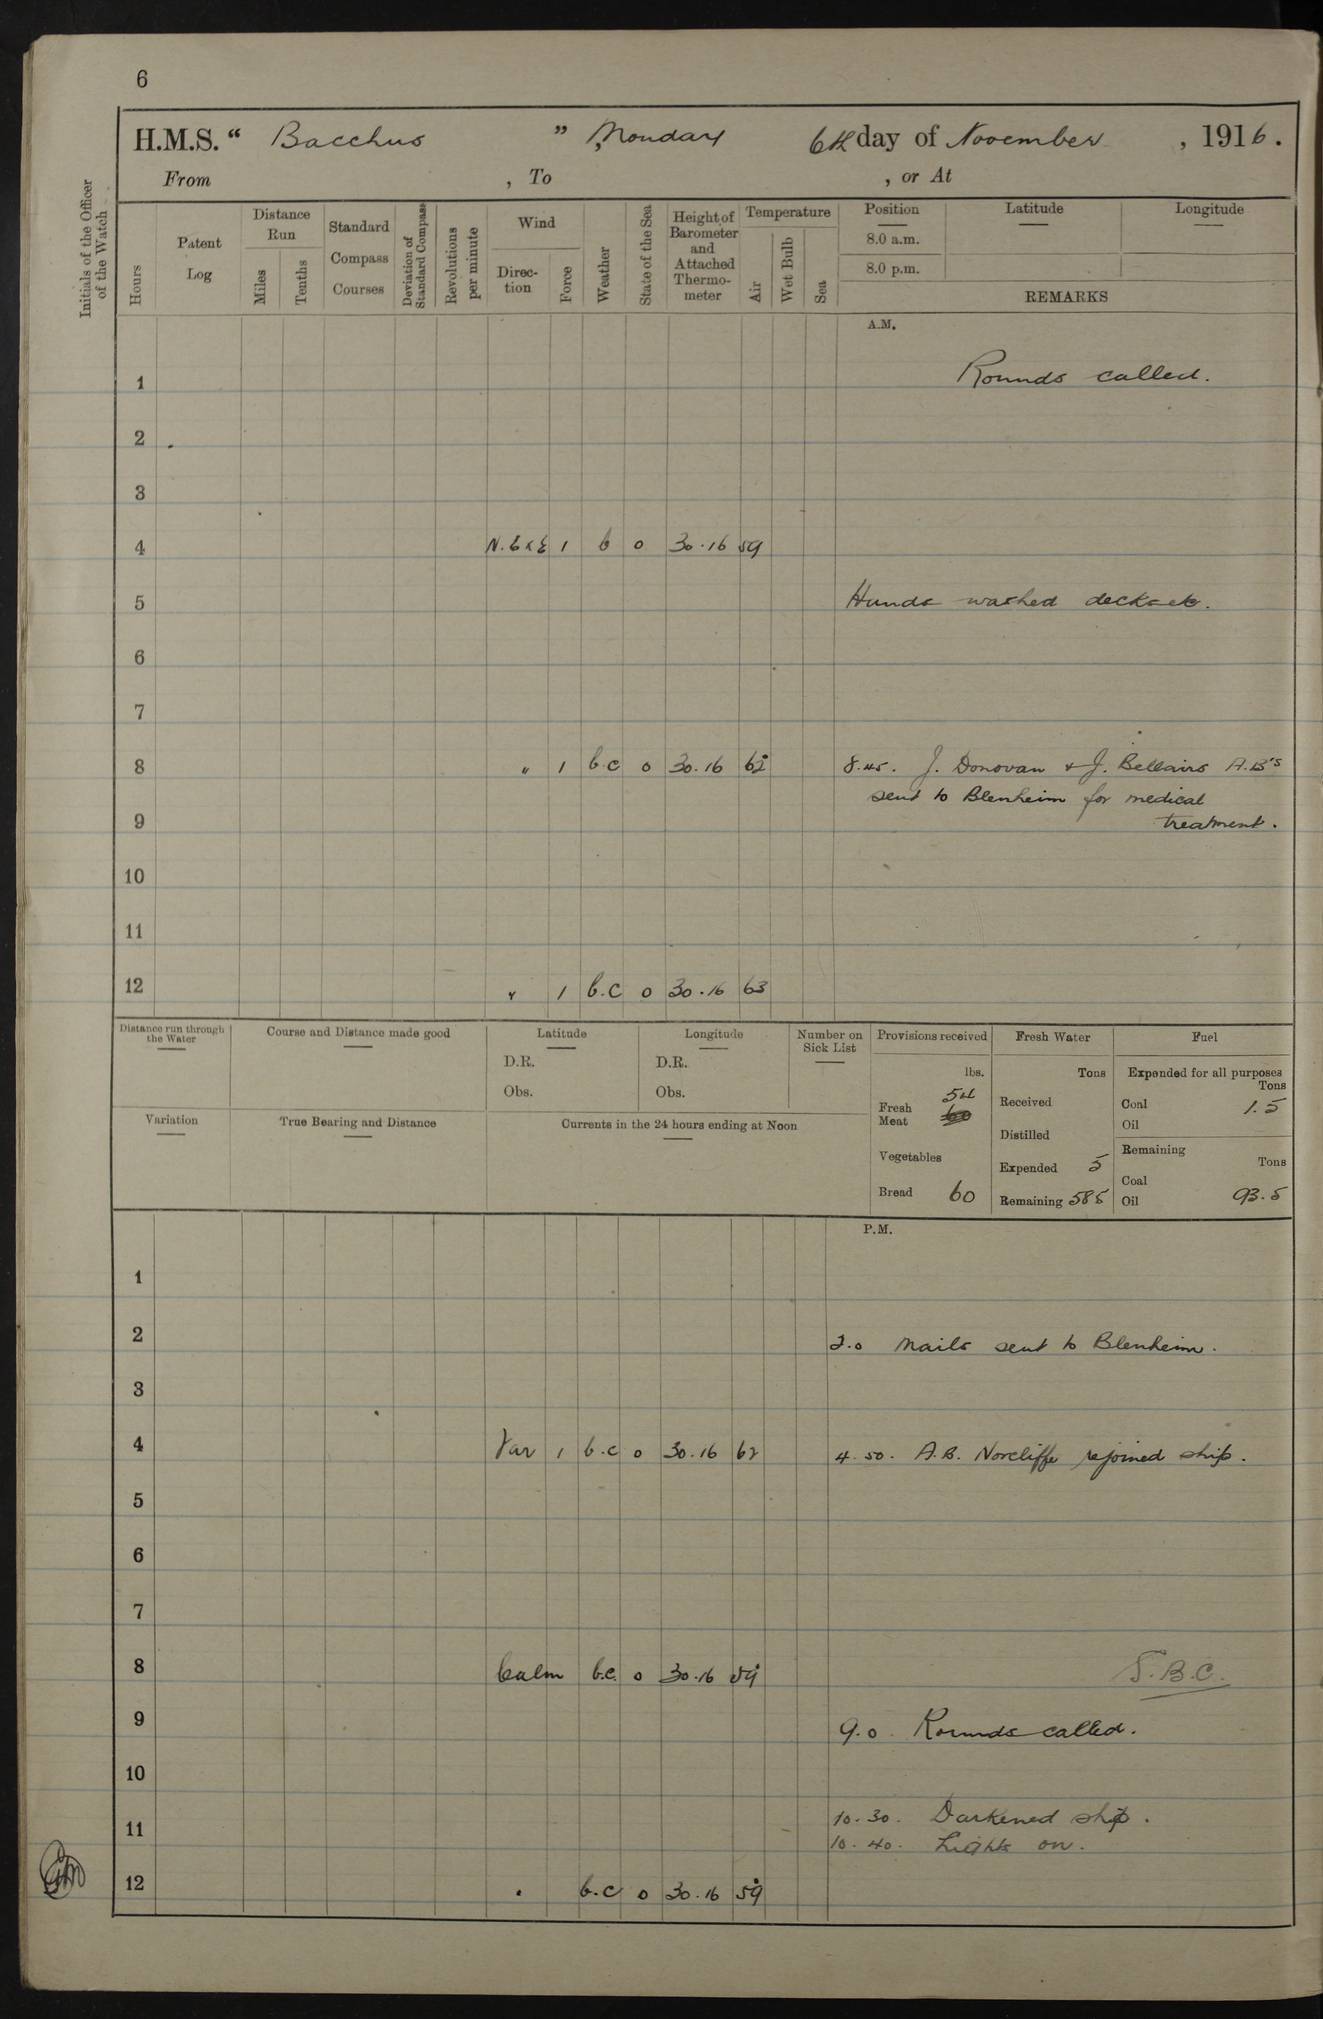 6
H.M.S. “ Bacchus ” , Monday 6th day of November , 1916.
From , To , or At
Initials of the Officer of the Watch
Hours
Patent Log
Distance Run
Miles
Tenths
Standard Compass Courses
Deviation of Standard Compass
Revolutions per minute
Wind
Direc-tion
Force
Weather
State of the Sea
Height of Barometer and Attached Thermo-meter
Temperature
Air
Wet Bulb
Sea
Position Latitude Longitude
8.0 a.m.
8.0 p.m.
REMARKS
A.M.
1 Rounds called.
2
3
4 1 b 0 30.16 59
5 Hands washed decks etc.
6
7
8 " 1 b.c 0 30.16 62 8.45. J. Donovan & J. Bellairs A.B's
sent to Blenheim for medical
9 treatment.
10
11
12 " 1 b.c 0 30.16 63
Distance run through the Water
Course and Distance made good
Latitude
D.R.
Obs.
Longitude
D.R.
Obs.
Number on Sick List
Variation
True Bearing and Distance
Currents in the 24 hours ending at Noon
Provisions received
lbs.
Fresh Meat 54
Vegetables
Bread 60
Fresh Water
Tons
Received
Distilled
Expended 5
Remaining 585
Fuel
Expended for all purposes
Tons
Coal 1.5
Oil
Remaining
Tons
Coal
Oil 93.5
P.M.
1
2 2.0 Mails sent to Blenheim.
3
4 Var 1 b.c 0 30.16 62 4.50. A.B. Norcliffe rejoined ship.
5
6
7
8 Calm b.c. 0 30.16 59
9 9.0 Rounds called.
10
10.30. Darkened ship.
11 10.40. Lights on.
12 " b.c 0 30.16 59